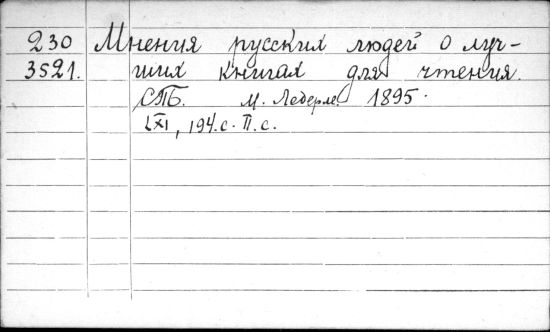 230 Мнения русских людей о луч-
3521. ших книгах для чтения.
СПБ. М. Ледерле. 1895.
LXI, 194. с. II. с.